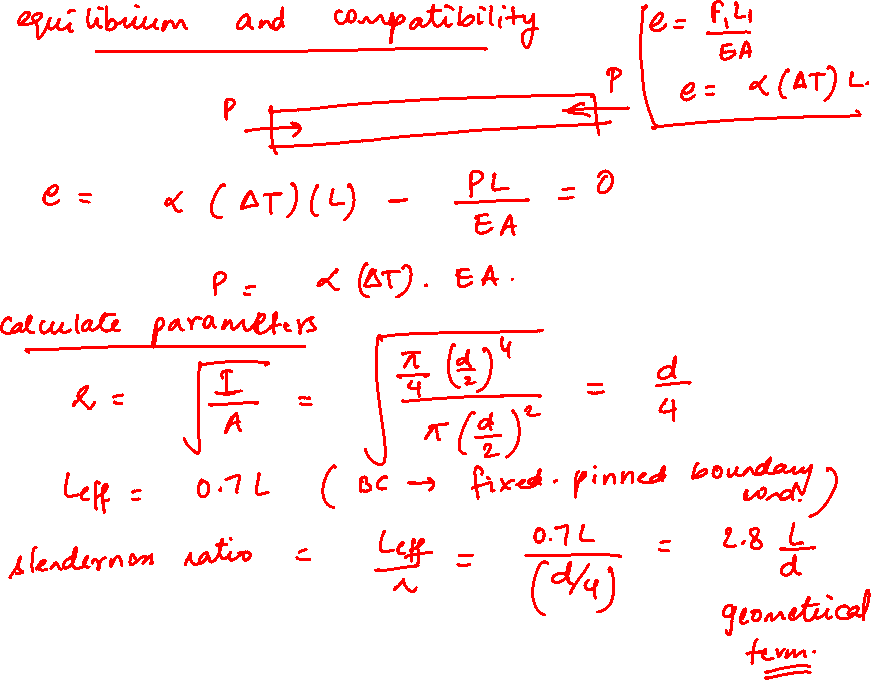 equilibrium and compatibility
e = F₁L₁/EA
e = α(ΔT) L.
P P
e = α (ΔT)(L) - PL/EA = 0
P = α (ΔT). EA.
calculate parameters
r = √(I/A) = √((π/4 (d/2)⁴)/(π(d/2)²)) = d/4
Leff = 0.7L (BC → fixed-pinned boundary cond.)
slenderness ratio = Leff/r = 0.7L/(d/4) = 2.8 L/d
geometrical
term.